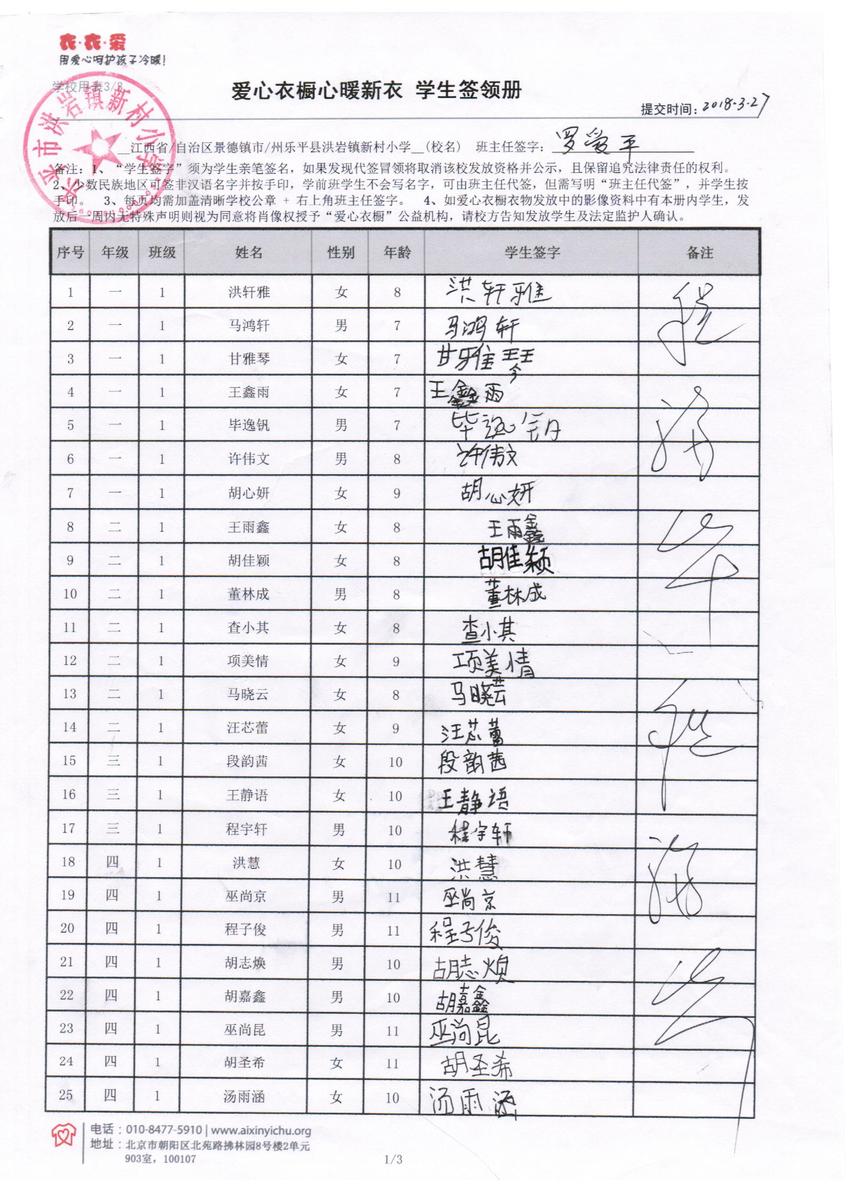 衣·衣·爱
用爱心呵护孩子冷暖!
学校用表3/8
爱心衣橱心暖新衣 学生签领册
提交时间: 2018-3-27
乐平市洪岩镇新村小学
江西省/自治区景德镇市/州乐平县洪岩镇新村小学__(校名) 班主任签字: 罗爱平
备注:1、“学生签字”须为学生亲笔签名,如果发现代签冒领将取消该校发放资格并公示,且保留追究法律责任的权利。
2、少数民族地区可签非汉语名字并按手印,学前班学生不会写名字,可由班主任代签,但需写明“班主任代签”,并学生按
手印。 3、每页均需加盖清晰学校公章 + 右上角班主任签字。 4、如爱心衣橱衣物发放中的影像资料中有本册内学生,发
放后一周内无特殊声明则视为同意将肖像权授予“爱心衣橱”公益机构,请校方告知发放学生及法定监护人确认。
序号 年级 班级 姓名 性别 年龄 学生签字 备注
1 一 1 洪轩雅 女 8 洪轩雅
2 一 1 马鸿轩 男 7 马鸿轩
3 一 1 甘雅琴 女 7 甘雅琴
4 一 1 王鑫雨 女 7 王鑫雨
5 一 1 毕逸钒 男 7 毕逸钒
6 一 1 许伟文 男 8 许伟文
7 一 1 胡心妍 女 9 胡心妍
8 二 1 王雨鑫 女 8 王雨鑫
9 二 1 胡佳颖 女 8 胡佳颖
10 二 1 董林成 男 8 董林成
11 二 1 查小其 女 8 查小其
12 二 1 项美情 女 9 项美情
13 二 1 马晓云 女 8 马晓芸
14 二 1 汪芯蕾 女 9 汪芯蕾
15 三 1 段韵茜 女 10 段韵茜
16 三 1 王静语 女 10 王静语
17 三 1 程宇轩 男 10 程宇轩
18 四 1 洪慧 女 10 洪慧
19 四 1 巫尚京 男 11 巫尚京
20 四 1 程子俊 男 11 程子俊
21 四 1 胡志焕 男 10 胡志焕
22 四 1 胡嘉鑫 男 10 胡嘉鑫
23 四 1 巫尚昆 男 11 巫尚昆
24 四 1 胡圣希 女 11 胡圣希
25 四 1 汤雨涵 女 10 汤雨涵
电话:010-8477-5910 | www.aixinyichu.org
地址:北京市朝阳区北苑路拂林园8号楼2单元
903室,100107
1/3